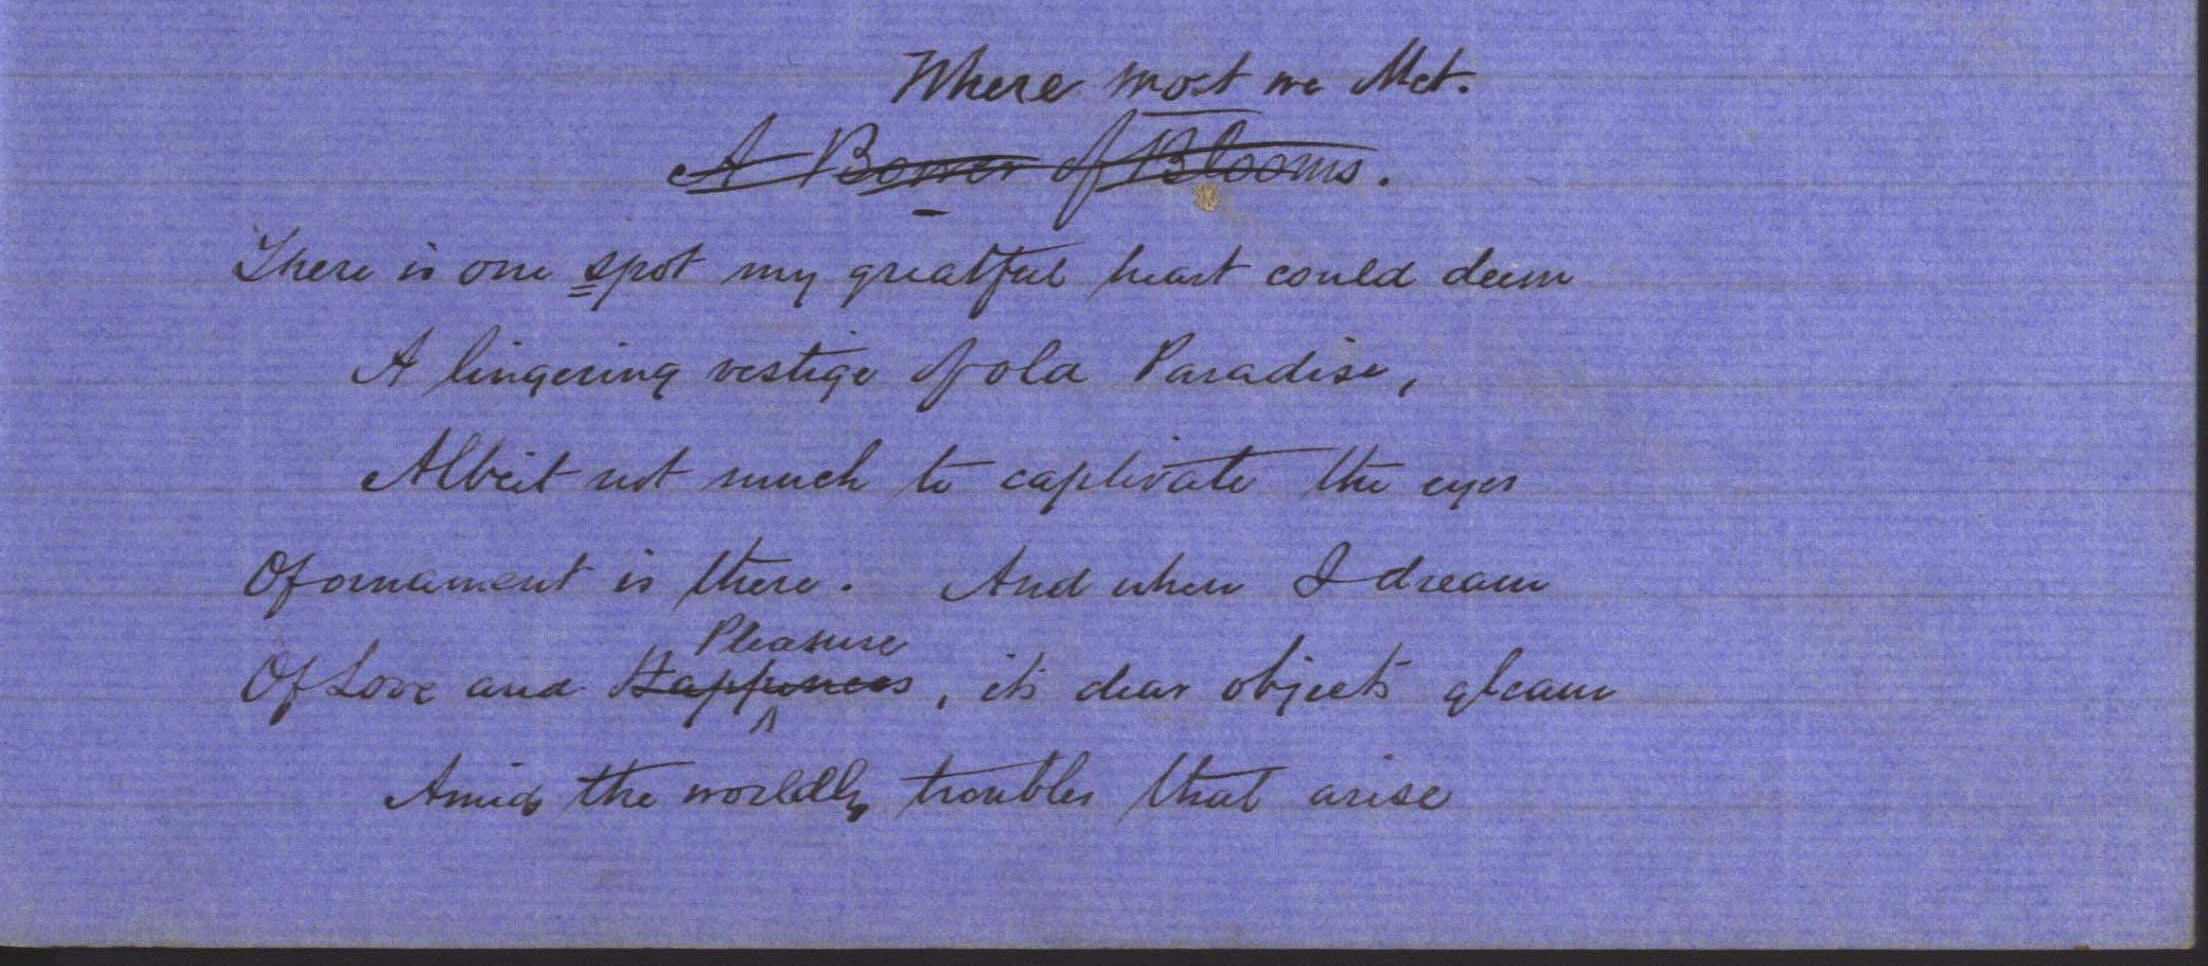 Where most we Met.
A Bower of Blooms.
There is one spot my greatful heart could deem
A lingering vestige of old Paradise,
Albeit not much to captivate the eyes
Of ornament is there. And when I dream
Pleasure
Of Love and Happiness, its dear objects gleam
Amid the worldly troubles that arise